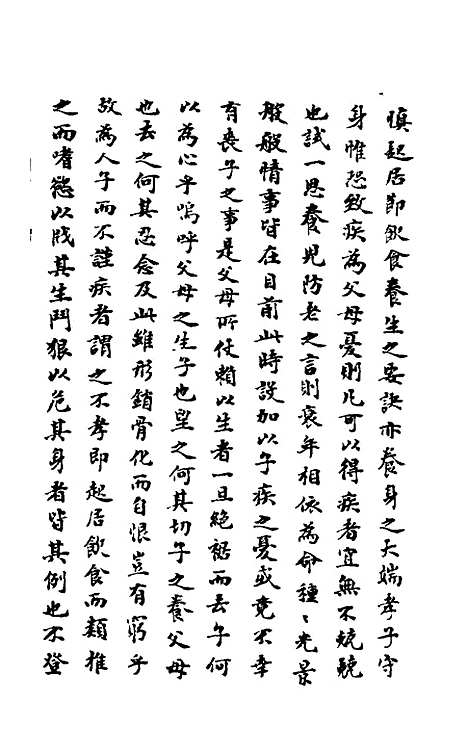 慎起居節飲食養生之要訣亦養身之大端孝子守
身惟恐致疾為父母憂則凡可以得疾者宜無不兢兢
也試一思養児防老之言則衰年相依為命種〻光景
般般情事皆在目前此時設加以子疾之憂或竟不幸
有喪子之事是父母所仗賴以生者一旦絕裾而去子何
以為心乎嗚呼父母之生子也望之何其切子之養父母
也去之何其忍念及此雖形銷骨化而自恨豈有窮乎
故為人子而不謹疾者謂之不孝即起居飲食而類推
之而嗜慾以戕其生鬥狠以危其身者皆其例也不登